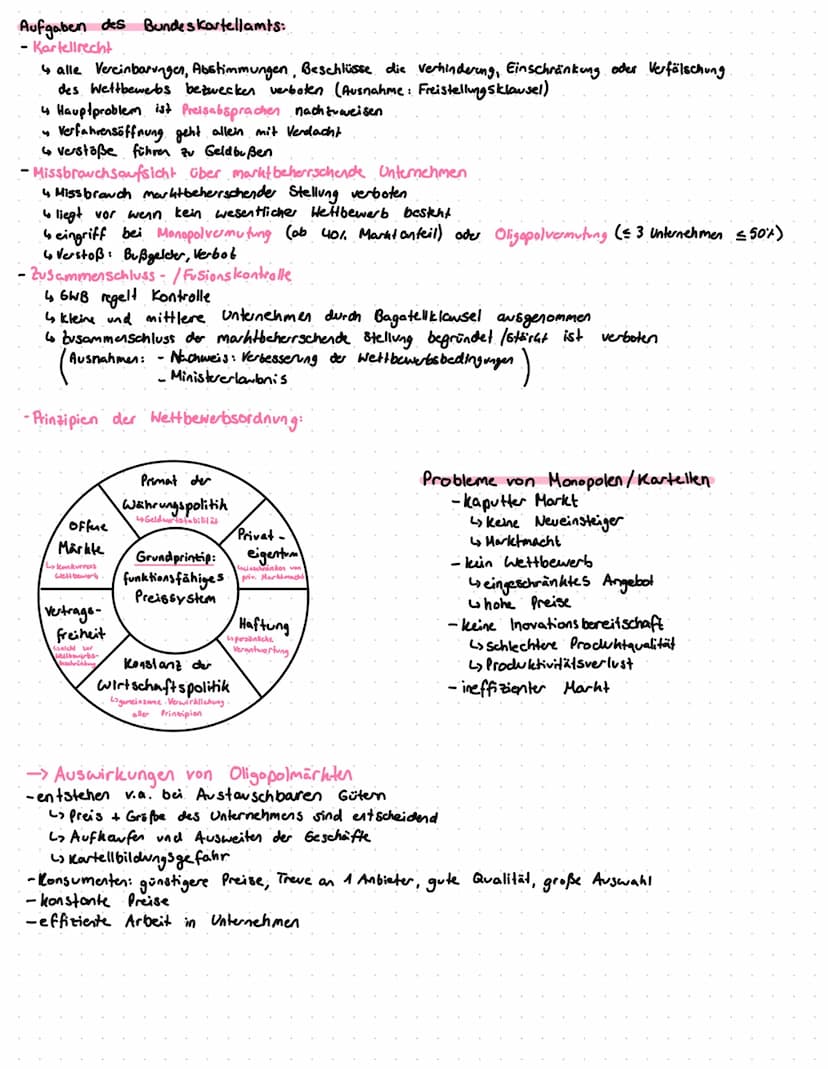 Aufgaben des Bundeskartellamts:
- Kartellrecht
↳ alle Vereinbarungen, Abstimmungen, Beschlüsse die Verhinderung, Einschränkung oder Verfälschung
des Wettbewerbs bezwecken verboten (Ausnahme: Freistellungsklausel)
↳ Hauptproblem ist Preisabsprachen nachzuweisen
↳ Verfahrensöffnung geht allein mit Verdacht
↳ Verstöße führen zu Geldbußen
- Missbrauchsaufsicht über marktbeherrschende Unternehmen
↳ Missbrauch marktbeherrschender Stellung verboten
↳ liegt vor wenn kein wesentlicher Wettbewerb besteht
↳ eingriff bei Monopolvermutung (ab 40% Marktanteil) oder Oligopolvermutung (≤ 3 Unternehmen ≤ 50%)
↳ Verstoß: Bußgelder, Verbot
- Zusammenschluss- / Fusionskontrolle
↳ GWB regelt Kontrolle
↳ kleine und mittlere Unternehmen durch Bagatellklausel ausgenommen
↳ Zusammenschluss der marktbeherrschende Stellung begründet /stärkt ist verboten
(Ausnahmen: - Nachweis: Verbesserung der Wettbewerbsbedingungen
- Ministererlaubnis)
- Prinzipien der Wettbewerbsordnung:
Primat der
Währungspolitik
↳ Geldwertstabilität
Privat-
eigentum
↳ Einschränken von
priv. Marktmacht
Haftung
↳ persönliche
Verantwortung
Konstanz der
Wirtschaftspolitik
↳ gemeinsame Verwirklichung
aller Prinzipien
Vertrags-
freiheit
↳ nicht zur
Wettbewerbs-
beschränkung
Offene
Märkte
↳ Konkurrenz
Wettbewerb
Grundprinzip:
funktionsfähiges
Preissystem
Probleme von Monopolen/Kartellen
- kaputter Markt
↳ keine Neueinsteiger
↳ Marktmacht
- kein Wettbewerb
↳ eingeschränktes Angebot
↳ hohe Preise
- keine Inovationsbereitschaft
↳ schlechtere Produktqualität
↳ Produktivitätsverlust
- ineffizienter Markt
→ Auswirkungen von Oligopolmärkten
- entstehen v.a. bei Austauschbaren Gütern
↳ Preis + Größe des Unternehmens sind entscheidend
↳ Aufkaufen und Ausweiten der Geschäfte
↳ Kartellbildungsgefahr
- Konsumenten: günstigere Preise, Treue an 1 Anbieter, gute Qualität, große Auswahl
- konstante Preise
- effiziente Arbeit in Unternehmen